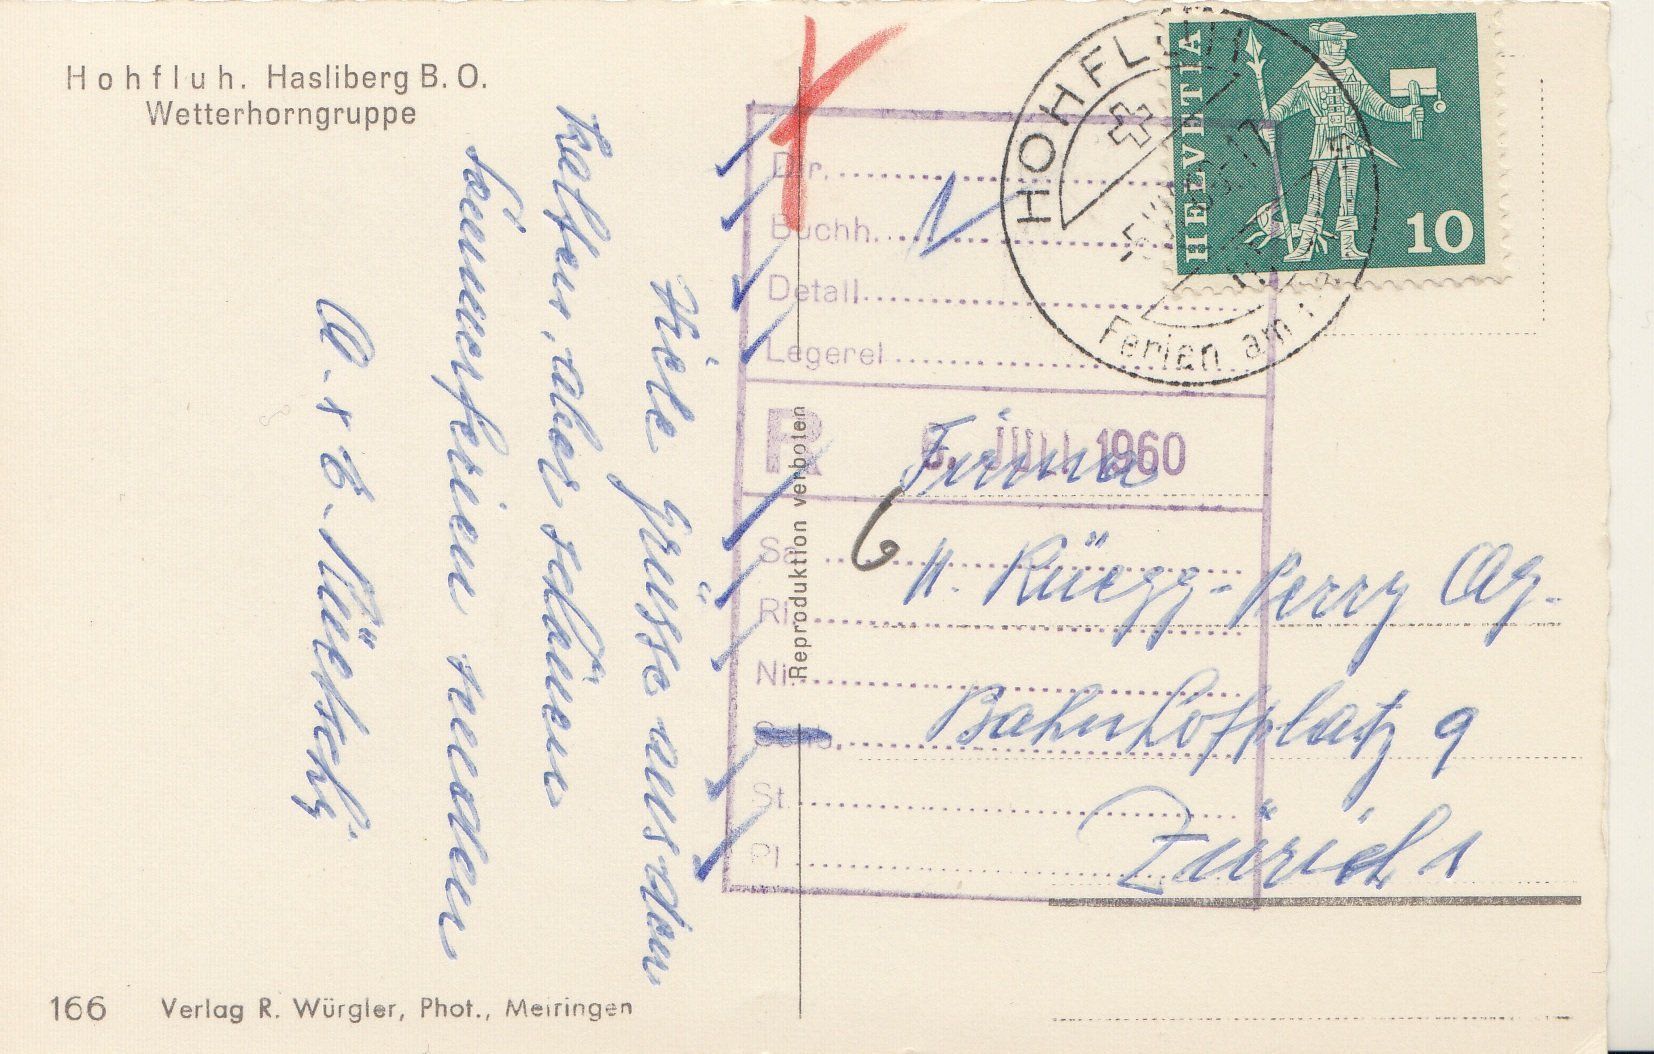 Hohfluh. Hasliberg B.O.
Wetterhorngruppe
Viele Grüsse aus dem
kalten, aber schönen
Sommerferien senden
Reproduktion verboten
HOHFLUH
Ferien am
HELVETIA
10
Dir.
Buchh.
Detail
Legerei
R 6. JULI 1960
Sa.
Ri.
Ni.
St.
Pl.
Firma
H. Rüegg-Perry Ag.
Bahnhofplatz 9
Zürich 1
166 Verlag R. Würgler, Phot., Meiringen